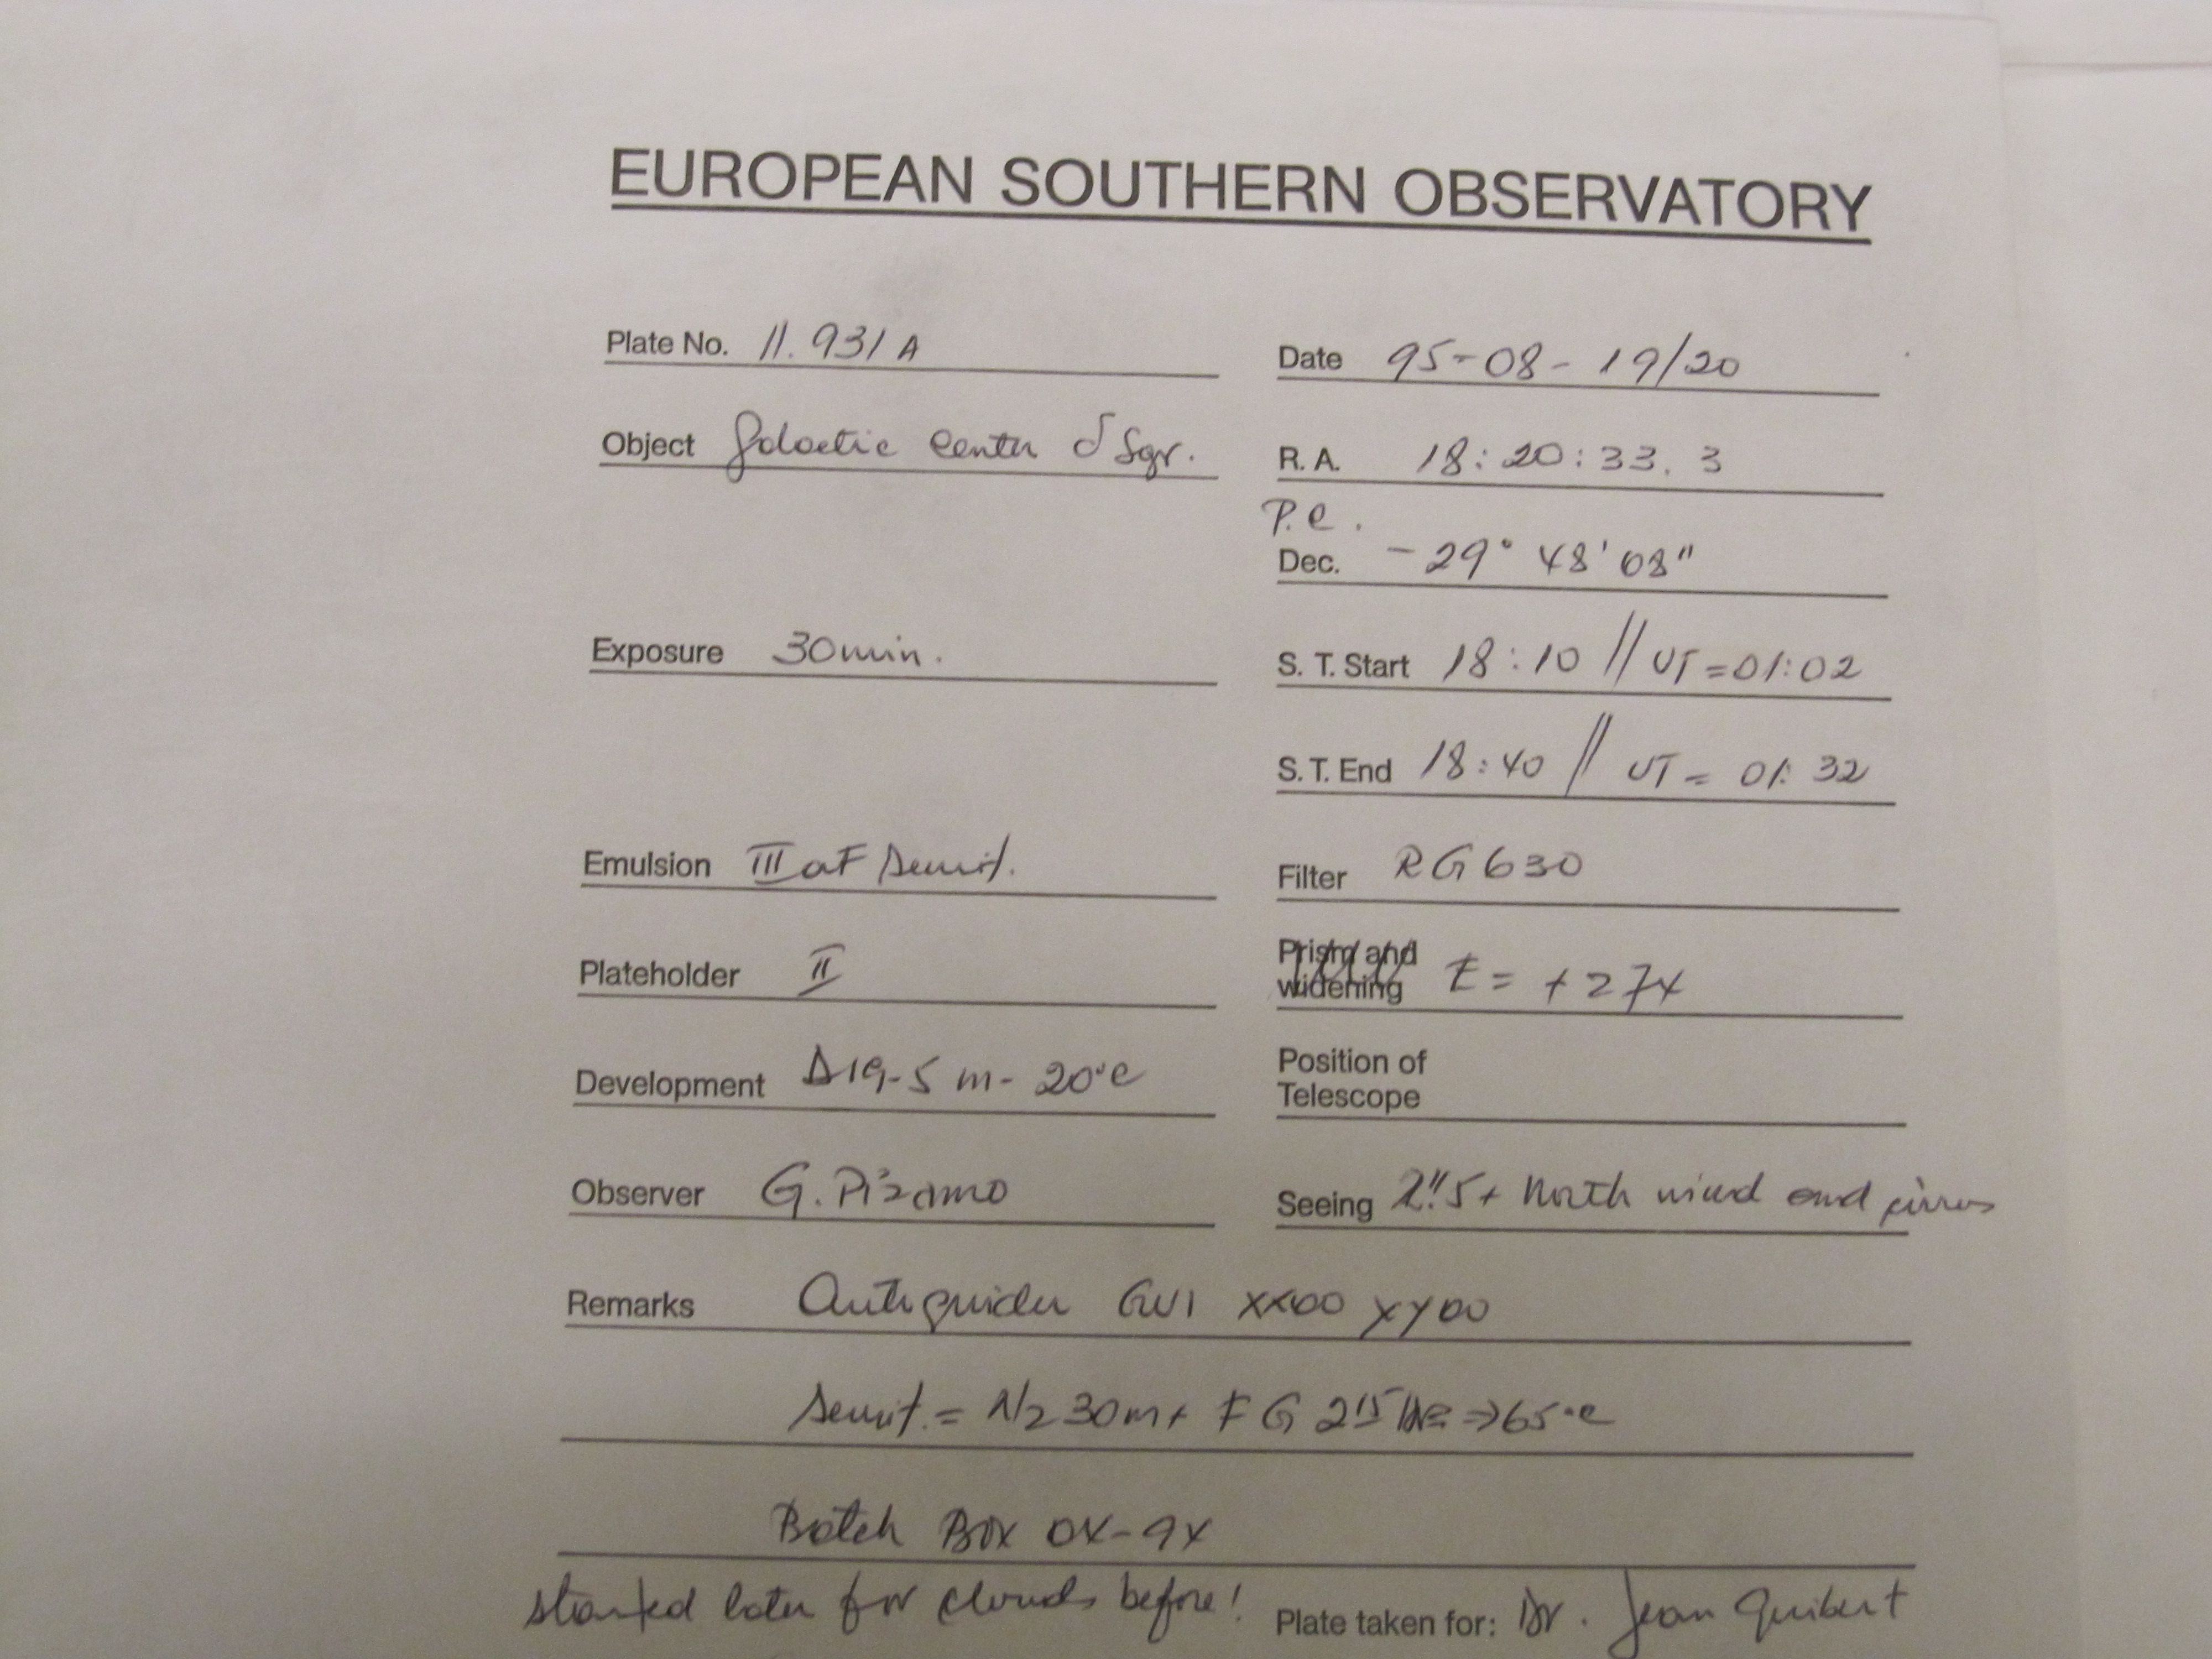 EUROPEAN SOUTHERN OBSERVATORY
Plate No. 11.931 A
Date 95-08-19/20
Object Galactic Center δ Sgr.
R. A. 18:20:33.3
P.C.
Dec. -29° 48' 08"
Exposure 30min.
S. T. Start 18:10 // UT=01:02
S. T. End 18:40 // UT= 01:32
Emulsion III aF Sensit.
Filter RG630
Plateholder II
Prism and
widening t = +274
Development D19-5m-20°C
Position of
Telescope
Observer G. Pizarro
Seeing 2".5+ North wind and cirrus
Remarks Autoguider GW1 XX00 XY00
Sensit.= N2 30m+ FG => 65°C
Batch Box 04-94
started later for clouds before!
Plate taken for: Dr. Jean Guibert